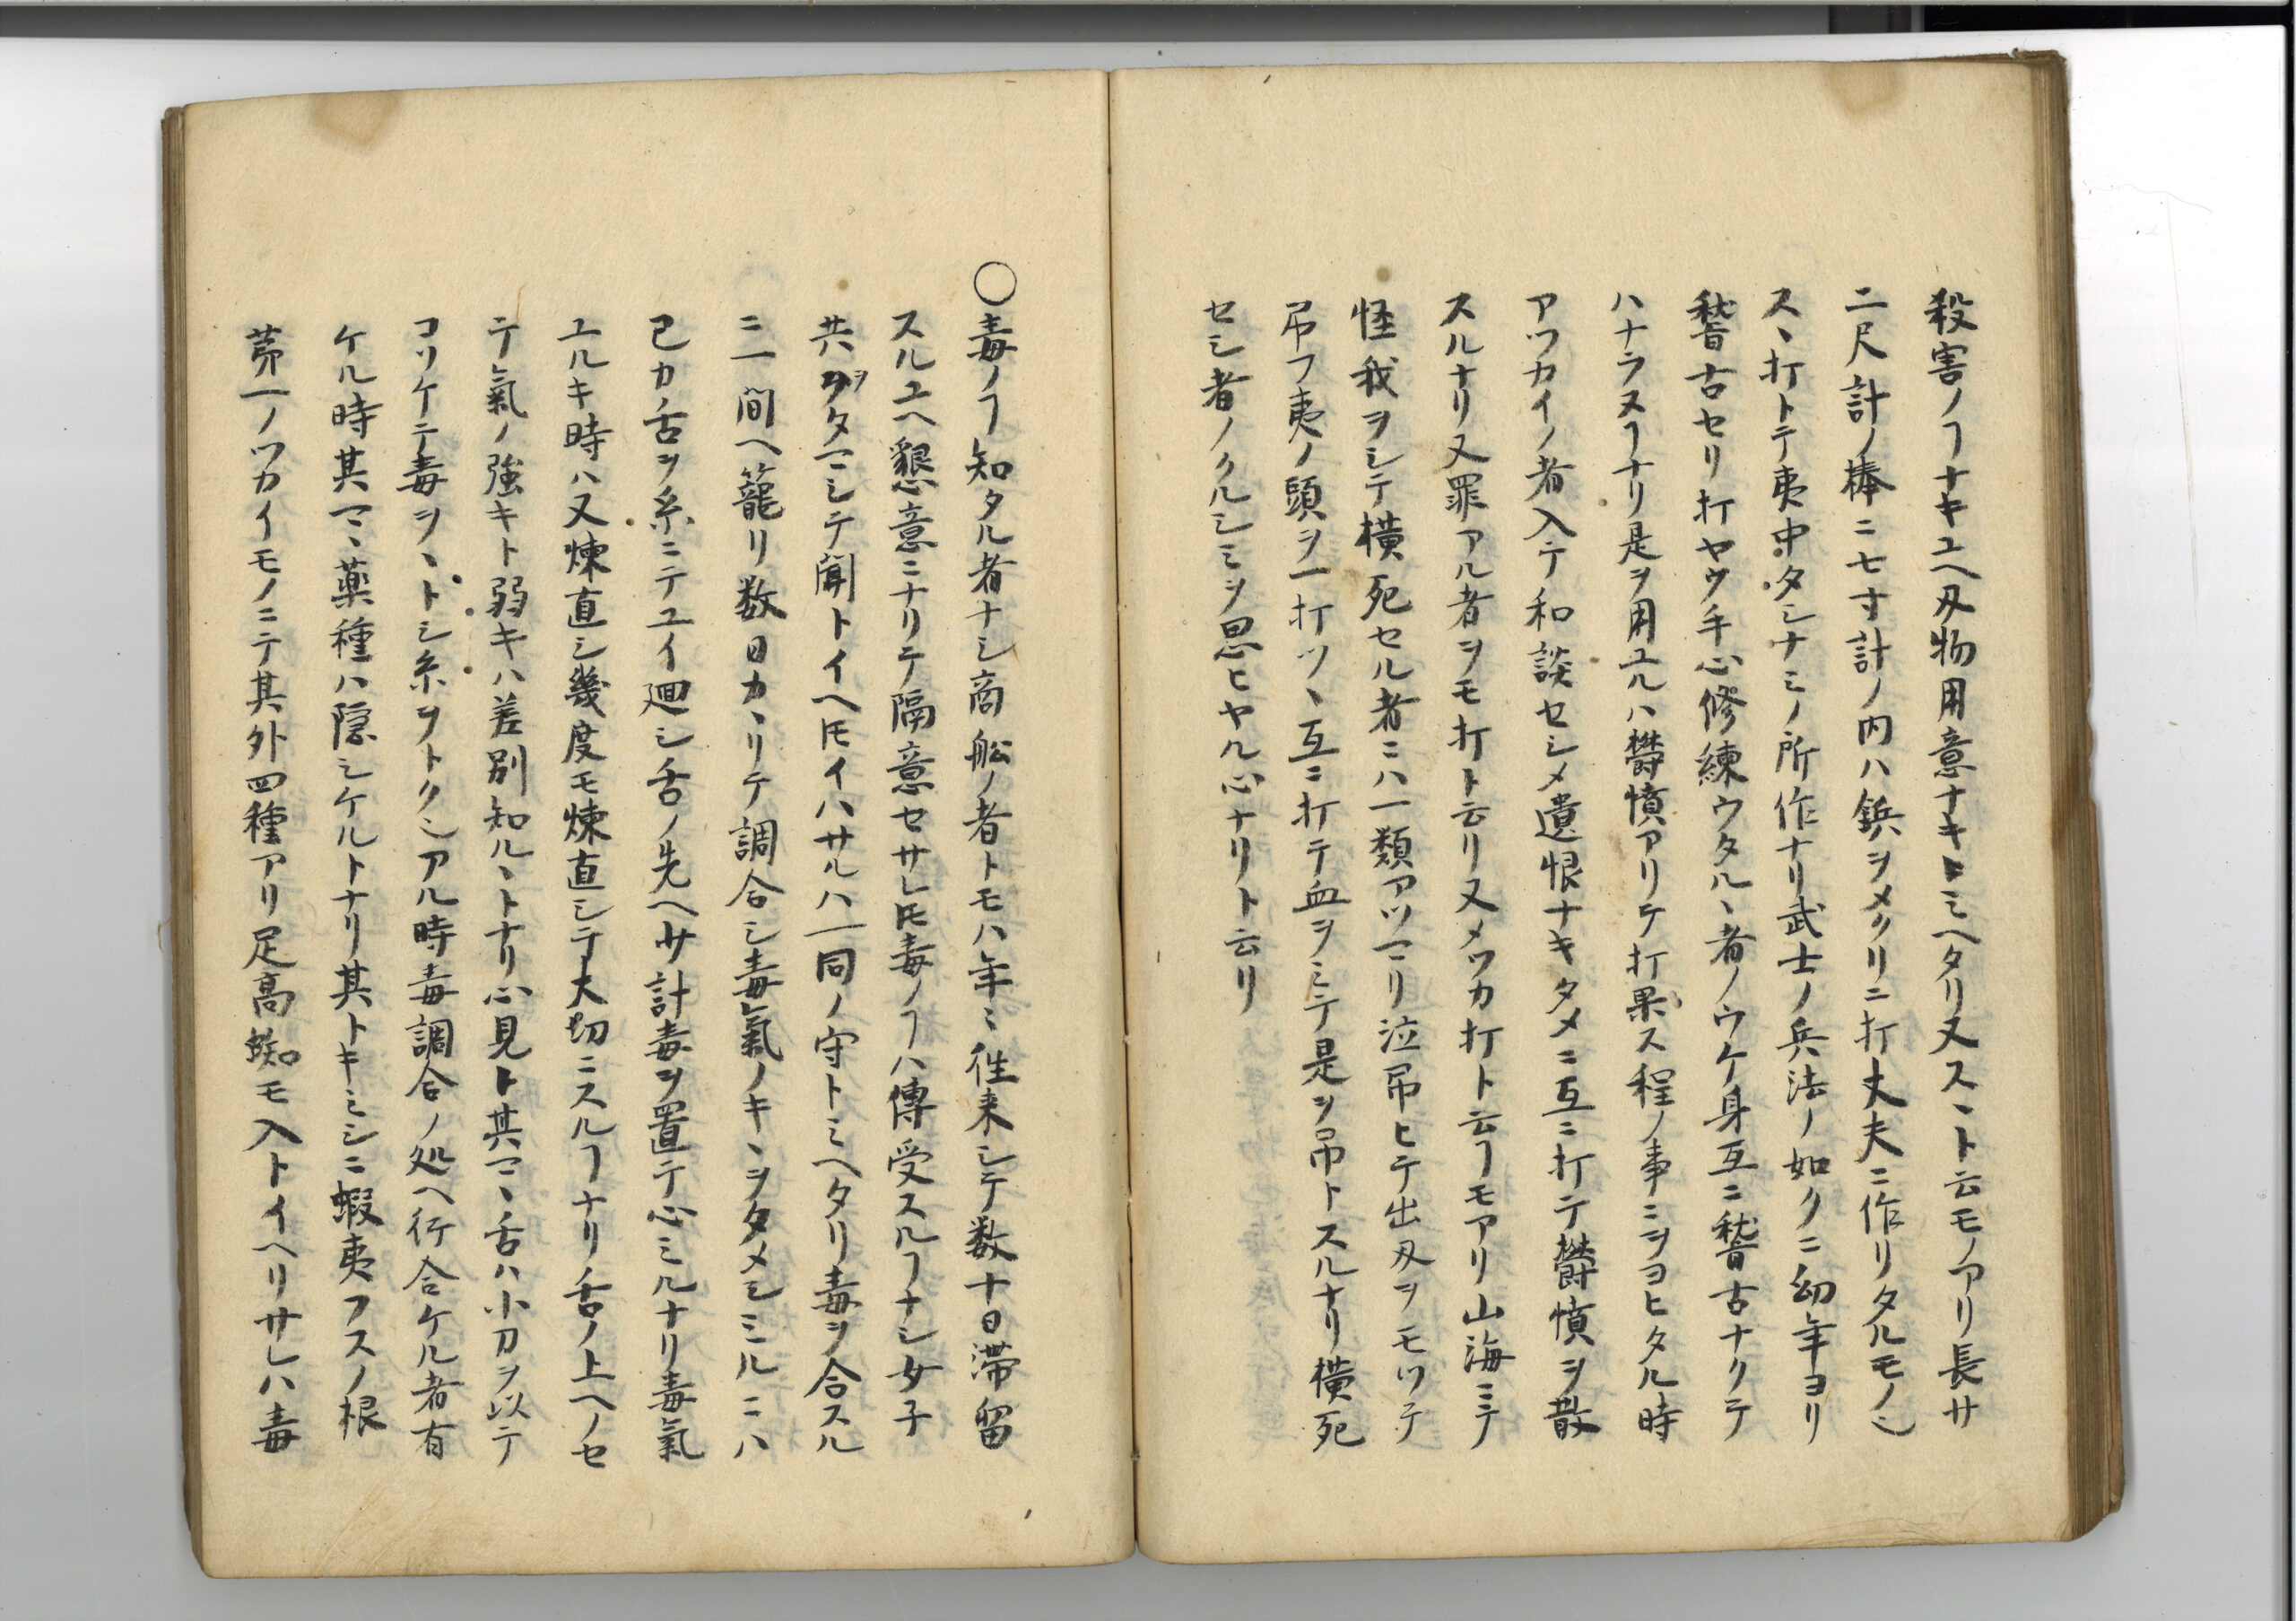 殺害ノヿナキユヘ刄物用意ナキトミヘタリ又スヽト云モノアリ長サ
二尺計ノ棒ニ七寸計ノ内ハ鋲ヲメクリニ打丈夫ニ作リタルモノニ
スヽ打トテ夷中タシナミノ所作ナリ武士ノ兵法ノ如クニ幼年ヨリ
稽古セリ打ヤウ手心修練ウタルヽ者ノウケ身互ニ稽古ナクテ
ハナラヌヿナリ是ヲ用ユルハ欝憤アリテ打果ス程ノ事ニヲヨヒタル時
アツカイノ者入テ和談セシメ遺恨ナキタメニ互ニ打テ欝憤ヲ散
スルナリ又罪アル者ヲモ打ト云リ又メツカ打ト云ヿモアリ山海ニテ
怪我ヲシテ横死セル者ニハ一類アツマリ泣吊ヒテ出刄ヲモツテ
吊フ夷ノ頭ヲ一打ツヽ互ニ打テ血ヲミテ是ヲ吊トスルナリ横死
セシ者ノクルシミヲ思ヒヤル心ナリト云リ
〇毒ノヿ知タル者ナシ商舩ノ者トモハ年ミ徃来シテ数十日滞留
スルユヘ懇意ニナリテ隔意セサレ𪜈毒ノヿハ傳受スルヿナシ女子
共ヲタマシテ聞トイヘ𪜈イハサルハ一同ノ守トミヘタリ毒ヲ合スル
ニ一間ヘ籠リ数日カヽリテ調合シ毒氣ノキヽヲタメシミルニハ
己カ舌ヲ糸ニテユイ廻シ舌ノ先ヘ少計毒ヲ置テ心ミルナリ毒氣
ユルキ時ハ又煉直シ幾度モ煉直シテ大切ニスルヿナリ舌ノ上ヘノセ
テ氣ノ強キト弱キハ差別知ルヽトナリ心見ト其マヽ舌ハ小刀ヲ以テ
コリケテ毒ヲヽトシ糸ヲトクシアル時毒調合ノ処ヘ行合ケル者有
ケル時其マヽ薬種ハ隠シケルトナリ其トキミシニ蝦夷フスノ根
苐一ノツカイモノニテ其外四種アリ足高蜘モ入トイヘリサレハ毒